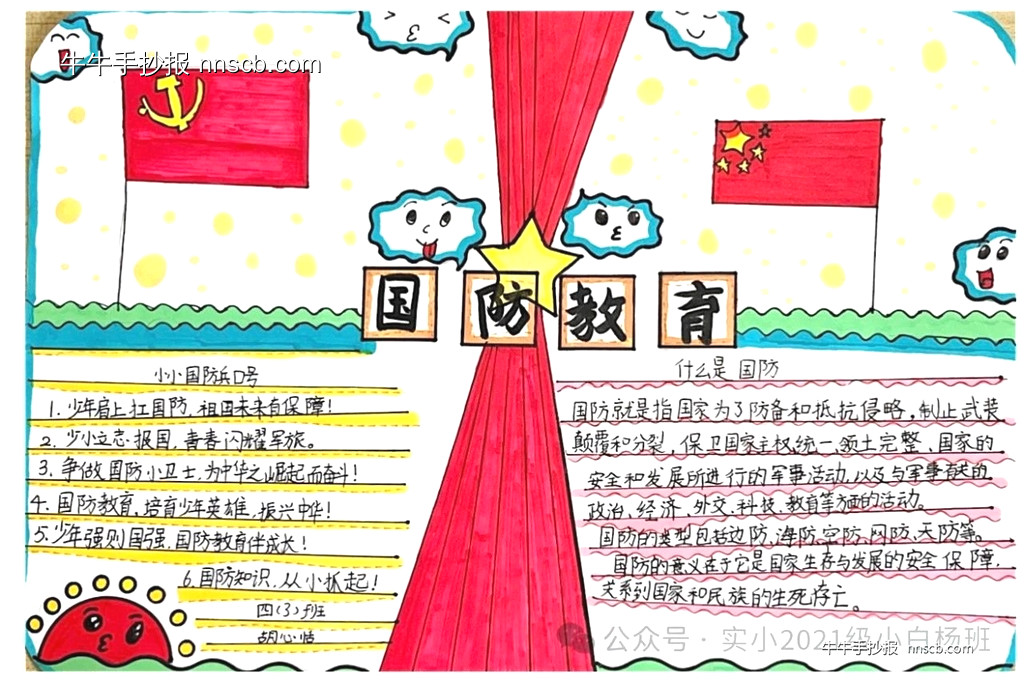 牛牛手抄报 nnscb.com
国防教育
小小国防兵口号
1. 少年肩上扛国防，祖国未来有保障！
2. 少小立志报国，青春闪耀军旅。
3. 争做国防小卫士，为中华之崛起而奋斗！
4. 国防教育，培育少年英雄，振兴中华！
5. 少年强则国强，国防教育伴成长！
6. 国防知识，从小抓起！
四（3）班
什么是国防
国防就是指国家为了防备和抵抗侵略，制止武装
颠覆和分裂，保卫国家主权、统一、领土完整、国家的
安全和发展所进行的军事活动，以及与军事有关的
政治、经济、外交、科技、教育等方面的活动。
国防的类型包括边防、海防、空防、网防、天防等。
国防的意义在于它是国家生存与发展的安全保障，
关系到国家和民族的生死存亡。
公众号·实小2021级小白杨班
牛牛手抄报 nnscb.com